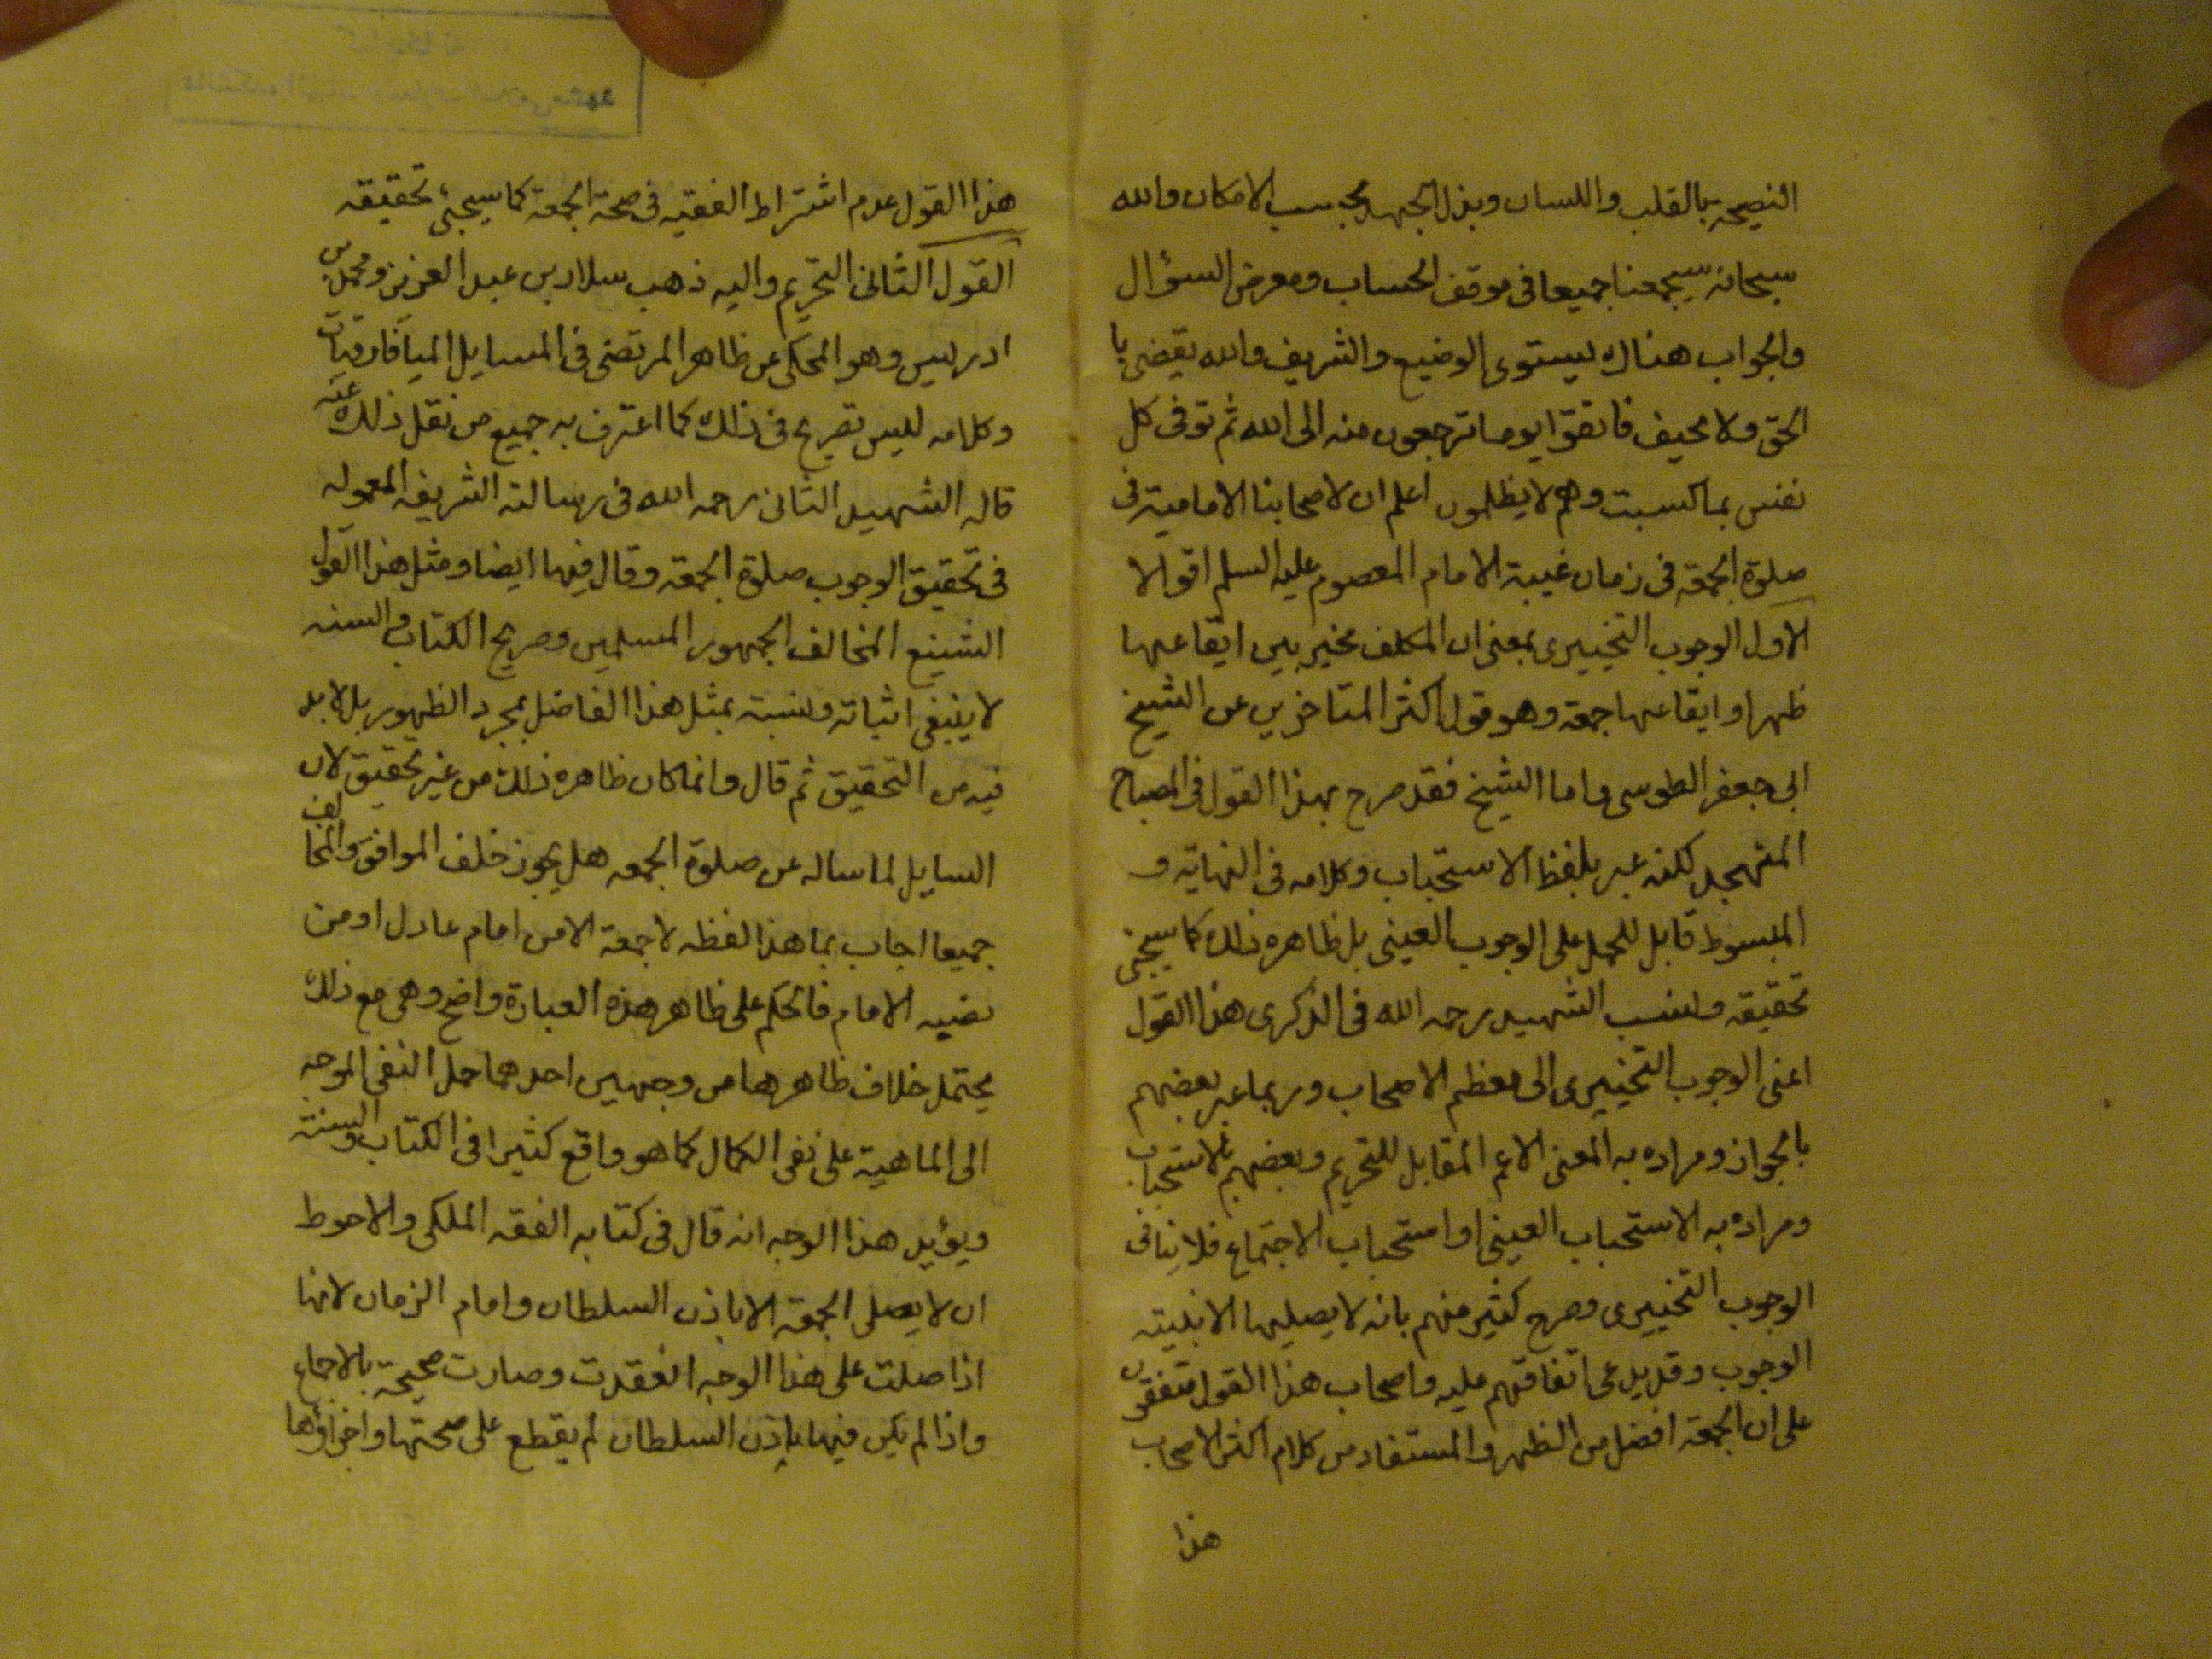 النصيحة بالقلب واللسان وبذل الجهد بحسب الامكان والله
سبحانه سيجمعنا جميعا فى موقف الحساب ومعرض السؤال
والجواب هناك يستوى الوضيع والشريف والله يقضى با
لحق ولا يحيف فاتقوا يوما ترجعون منه الى الله ثم توفى كل
نفس بما كسبت وهم لا يظلمون اعلم ان لاصحابنا الامامية فى
صلوة الجمعة فى زمان غيبة الامام المعصوم عليه السلم اقوالا
الاول الوجوب التخييرى بمعنى ان المكلف مخير بين ايقاعها
ظهرا وايقاعها جمعة وهو قول اكثر المتاخرين عن الشيخ
ابى جعفر الطوسى واما الشيخ فقد صرح بهذا القول فى المصباح
المتهجد لكنه عبر بلفظ الاستحباب وكلامه فى النهاية و
المبسوط قابل للحمل على الوجوب العينى بل ظاهره ذلك كما سيجئ
تحقيقه ونسب الشهيد رحمه الله فى الذكرى هذا القول
اعنى الوجوب التخييرى الى معظم الاصحاب وربما عبر بعضهم
بالجواز ومراده به المعنى الاعم المقابل للتحريم وبعضهم بالاستحباب
ومراده به الاستحباب العينى او استحباب الاجتماع فلا ينافى
الوجوب التخييرى وصرح كثير منهم بانه لا يصليها الا بنية
الوجوب وقد يدعى اتفاقهم عليه واصحاب هذا القول متفقون
على ان الجمعة افضل من الظهر والمستفاد من كلام اكثر الاصحاب
هذا
هذا القول عدم اشتراط الفقيه فى صحة الجمعة كما سيجئ تحقيقه
القول الثانى التحريم واليه ذهب سلار بن عبد العزيز ومحمد بن
ادريس وهو المحكى عن ظاهر المرتضى فى المسايل الميافارقيات
وكلامه ليس تصريح فى ذلك كما اعترف به جميع من نقل ذلك عنه
قاله الشهيد الثانى رحمه الله فى رسالته الشريفه المعموله
فى تحقيق الوجوب صلوة الجمعة وقال فيها ايضا ومثل هذا القول
الشنيع المخالف لجمهور المسلمين وصريح الكتاب والسنه
لا ينبغى اثباته ونسبته بمثل هذا الفاضل بمجرد الظهور بل لابد
فيه من التحقيق ثم قال وانما كان ظاهره ذلك من غير تحقيق لان
السايل لما ساله عن صلوة الجمعه هل يجوز خلف الموافق والمخالف
جميعا اجاب بما هذا لفظه لا جمعة الا من امام عادل او من
نصبه الامام فالحكم على ظاهر هذه العبارة واضح وهى مع ذلك
يحتمل خلاف ظاهرها من وجهين احدهما حمل النفى الموجه
الى الماهية على نفى الكمال كما هو واقع كثيرا فى الكتاب والسنة
ويؤيد هذا الوجه انه قال فى كتابه الفقه الملكى والاحوط
ان لا يصلى الجمعة الا باذن السلطان وامام الزمان لانها
اذا صلت على هذا الوجه انعقدت وصارت صحيحة بالاجماع
واذا لم يكن فيها باذن السلطان لم يقطع على صحتها واجزاؤها